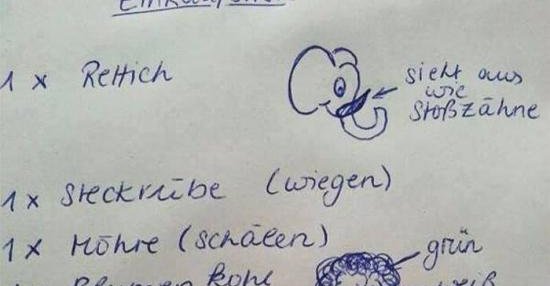 1 x Rettich
sieht aus
wie
Stoßzähne
1 x Steckrübe (wiegen)
1 x Möhre (schälen)
grün
Blumenkohl
weiß